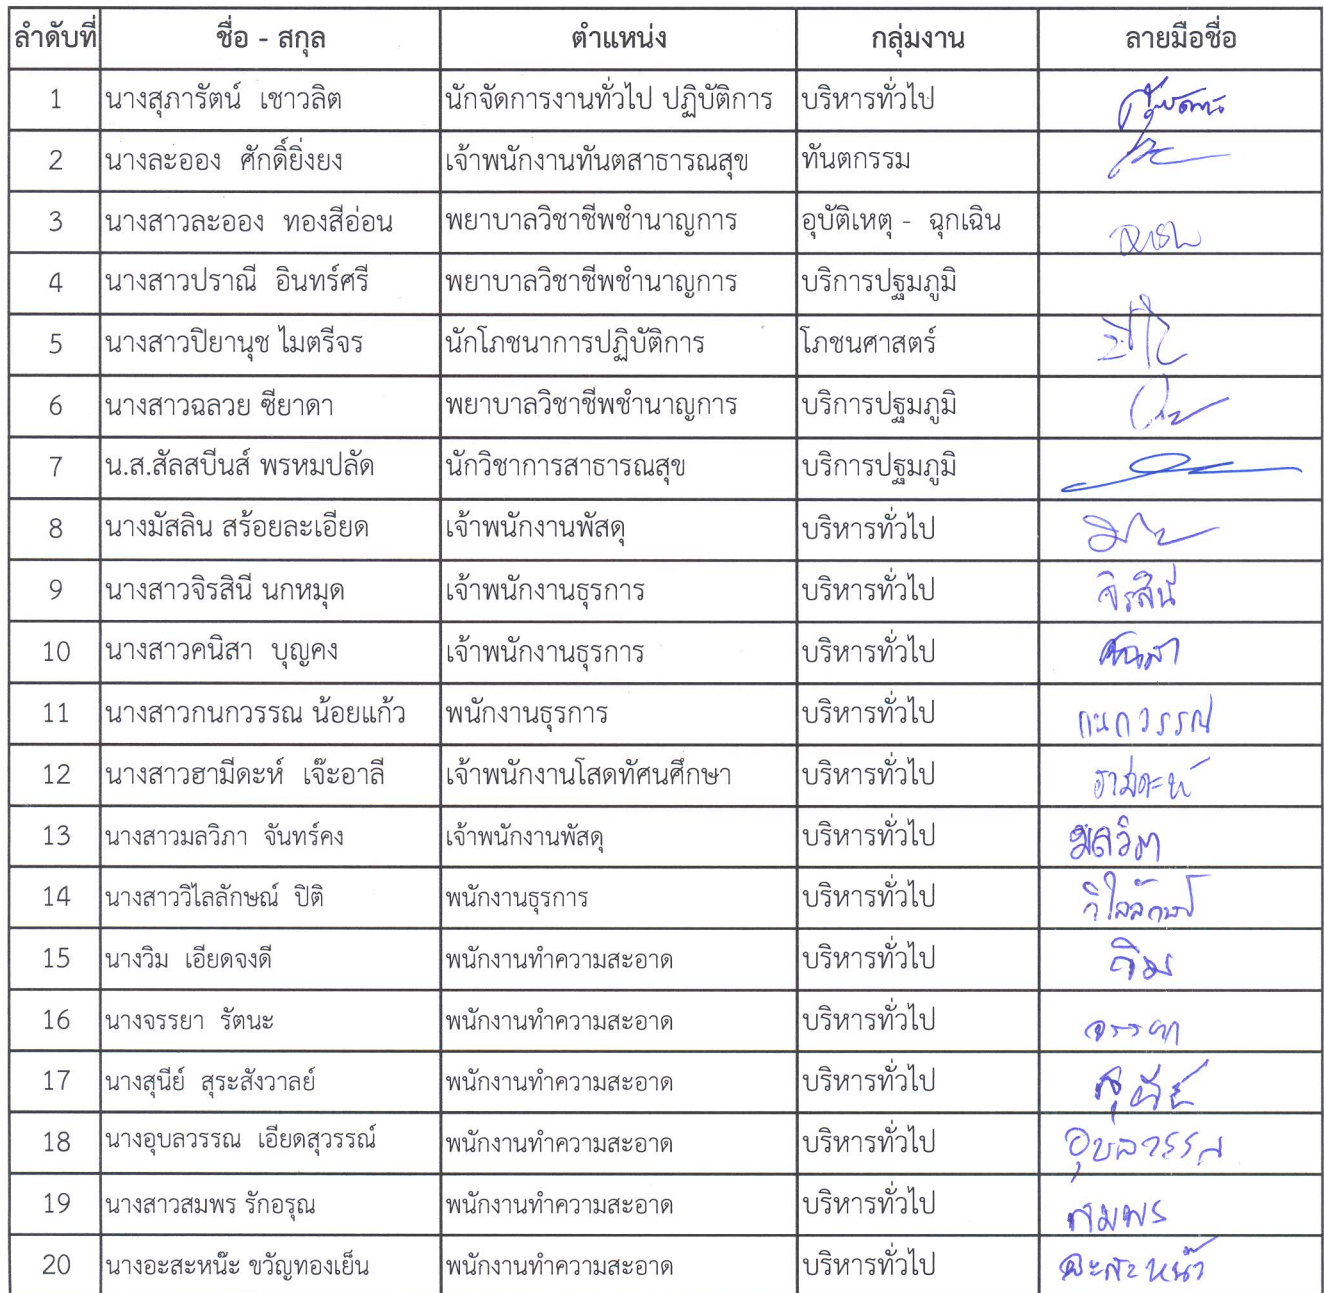 ลำดับที่ ชื่อ - สกุล ตำแหน่ง กลุ่มงาน ลายมือชื่อ
1 นางสุภารัตน์ เชาวลิต นักจัดการงานทั่วไป ปฏิบัติการ บริหารทั่วไป
2 นางละออง ศักดิ์ยิ่งยง เจ้าพนักงานทันตสาธารณสุข ทันตกรรม
3 นางสาวละออง ทองสีอ่อน พยาบาลวิชาชีพชำนาญการ อุบัติเหตุ - ฉุกเฉิน
4 นางสาวปราณี อินทร์ศรี พยาบาลวิชาชีพชำนาญการ บริการปฐมภูมิ
5 นางสาวปิยานุช ไมตรีจร นักโภชนาการปฏิบัติการ โภชนศาสตร์
6 นางสาวฉลวย ซียาดา พยาบาลวิชาชีพชำนาญการ บริการปฐมภูมิ
7 น.ส.สัลสบีนส์ พรหมปลัด นักวิชาการสาธารณสุข บริการปฐมภูมิ
8 นางมัสลิน สร้อยละเอียด เจ้าพนักงานพัสดุ บริหารทั่วไป
9 นางสาวจิรสินี นกหมุด เจ้าพนักงานธุรการ บริหารทั่วไป จิรสินี
10 นางสาวคนิสา บุญคง เจ้าพนักงานธุรการ บริหารทั่วไป
11 นางสาวกนกวรรณ น้อยแก้ว พนักงานธุรการ บริหารทั่วไป กนกวรรณ
12 นางสาวฮามีดะห์ เจ๊ะอาลี เจ้าพนักงานโสดทัศนศึกษา บริหารทั่วไป ฮามีดะห์
13 นางสาวมลวิภา จันทร์คง เจ้าพนักงานพัสดุ บริหารทั่วไป มลวิภา
14 นางสาววิไลลักษณ์ ปิติ พนักงานธุรการ บริหารทั่วไป วิไลลักษณ์
15 นางวิม เอียดจงดี พนักงานทำความสะอาด บริหารทั่วไป วิม
16 นางจรรยา รัตนะ พนักงานทำความสะอาด บริหารทั่วไป จรรยา
17 นางสุนีย์ สุระสังวาลย์ พนักงานทำความสะอาด บริหารทั่วไป สุนีย์
18 นางอุบลวรรณ เอียดสุวรรณ์ พนักงานทำความสะอาด บริหารทั่วไป อุบลวรรณ
19 นางสาวสมพร รักอรุณ พนักงานทำความสะอาด บริหารทั่วไป สมพร
20 นางอะสะหน๊ะ ขวัญทองเย็น พนักงานทำความสะอาด บริหารทั่วไป